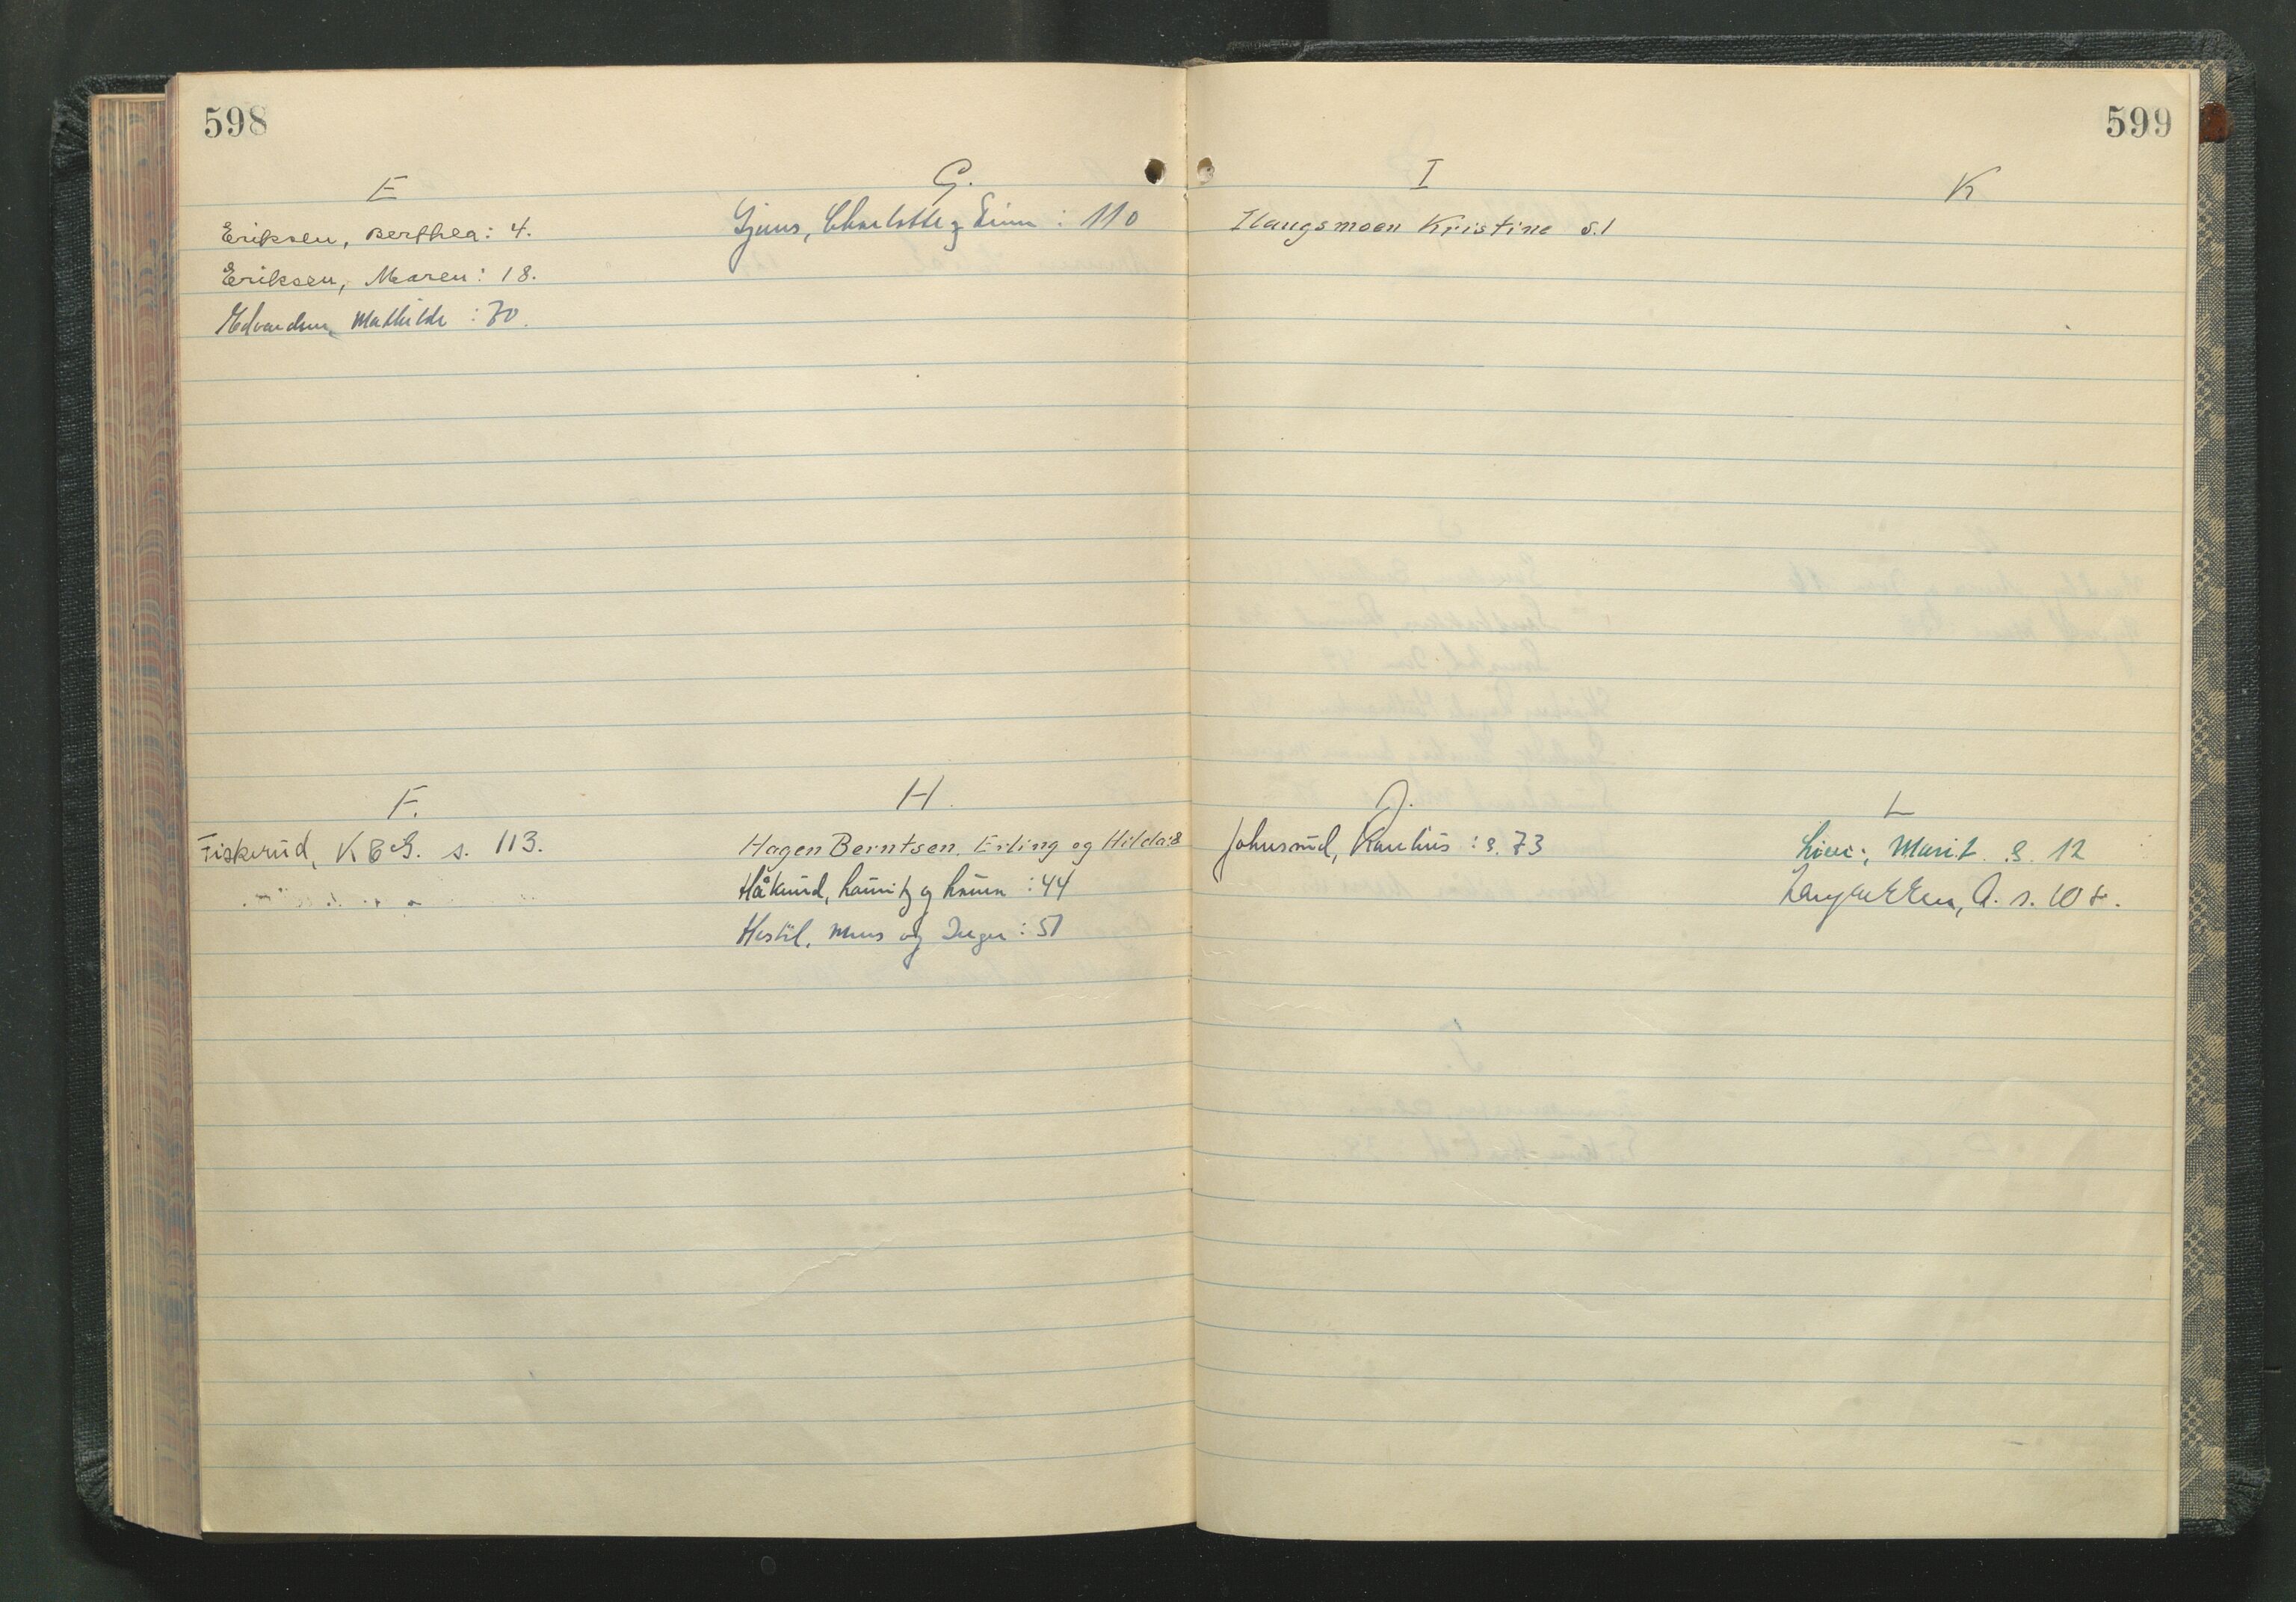 598
E
Eriksen, Berthea: 4.
Eriksen, Maren: 18.
Edvardsen, Mathilde: 70.
G.
Gjems, Charlotte og Einar: 110
F.
Fiskerud, K s. 113.
H.
Hagen Berntsen, Erling og Hilda: 8
Håkerud, og : 44
og Inger: 51
599
I
Ilaugsmoen Kristine s. 1
K
J.
Johnsrud, : s. 73
L
Marit s. 12
A. s.